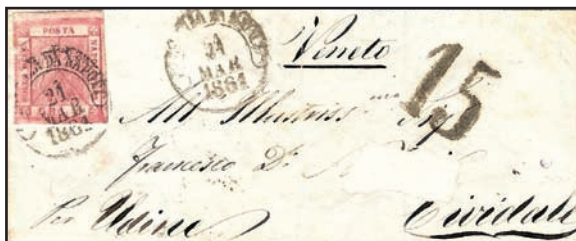 POSTA
21
MAR
1861
21
MAR
1861
Veneto
15
All' Illustriss.mo Sig
Francesco D.
Per Udine
Cividale